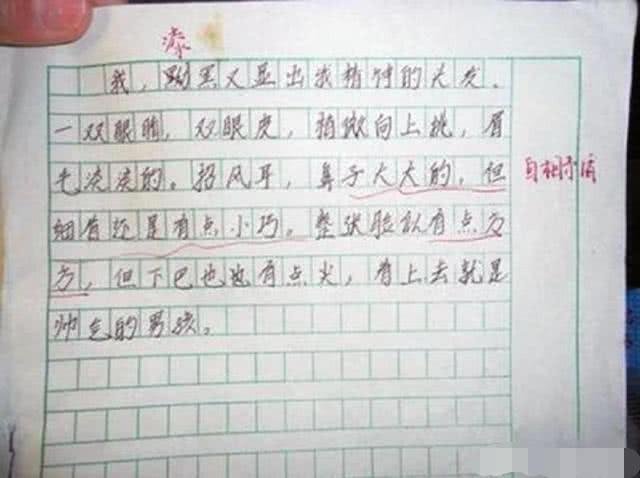 漆
我，黝黑又显出我精神的大发。
一双眼睛，双眼皮，稍微向上挑，眉
毛淡淡的。招风耳，鼻子大大的，但
细看还是有点小巧。整张脸似有点方
方，但下巴也有点尖，看上去就是
帅气的男孩。
自相矛盾